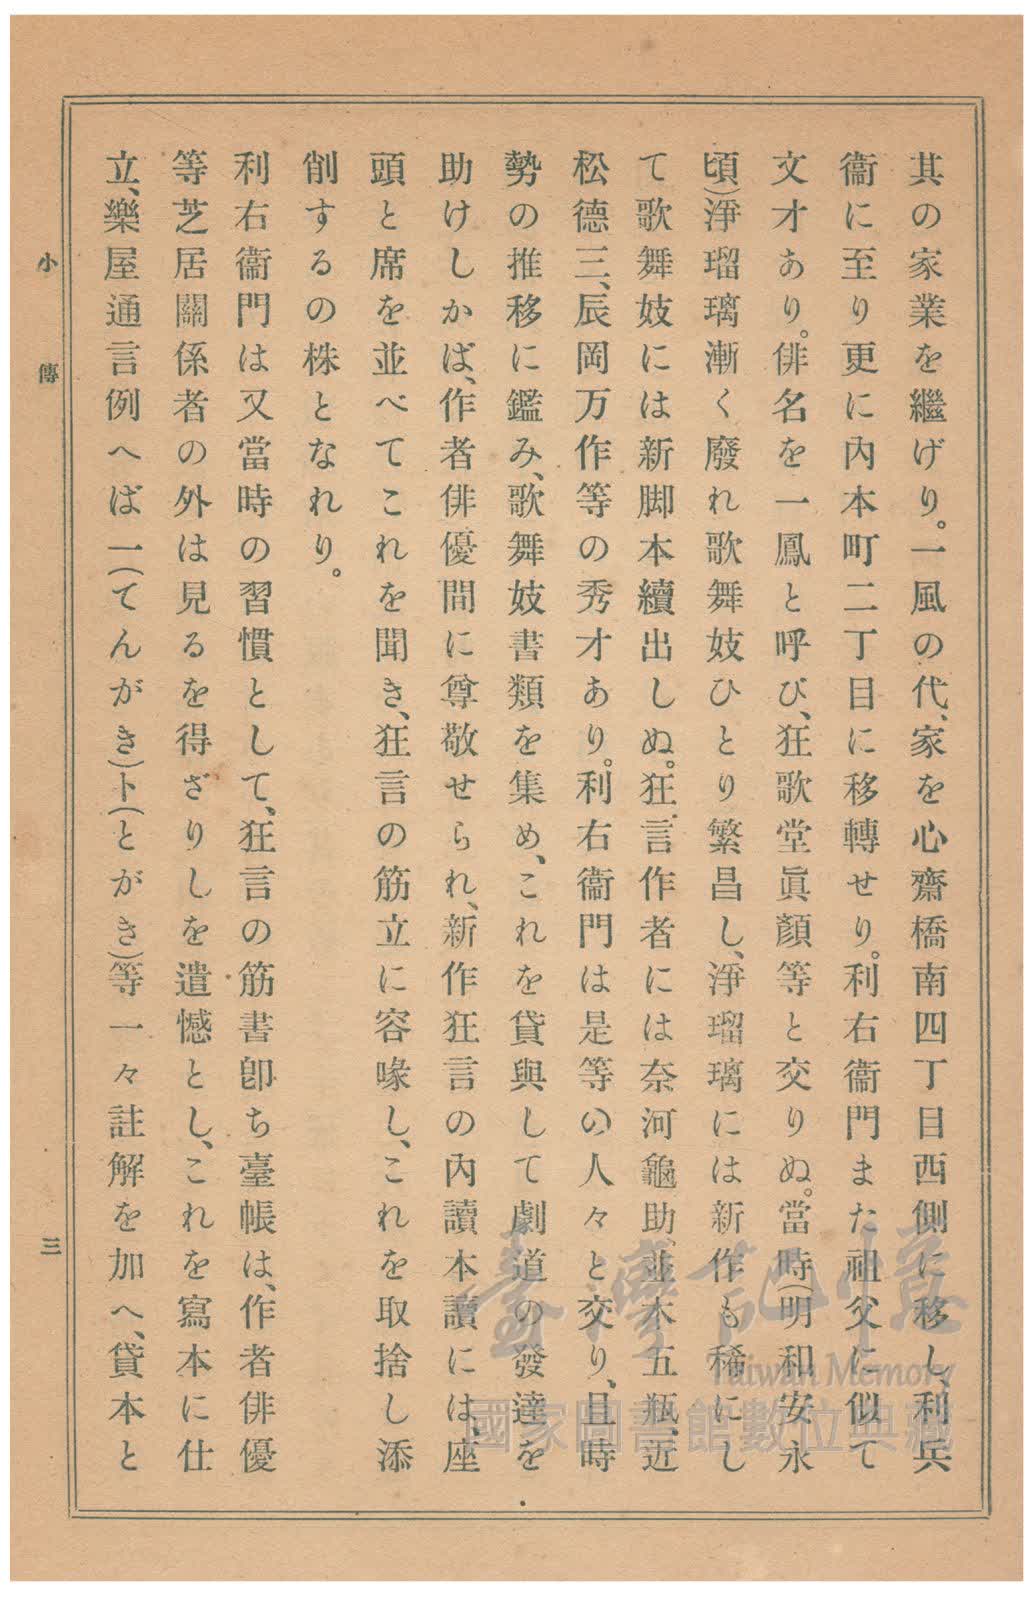 其の家業を繼げり。一風の代、家を心齋橋南四丁目西側に移し、利兵
衞に至り更に內本町二丁目に移轉せり。利右衞門また祖父に似て
文才あり。俳名を一鳳と呼び、狂歌堂眞顏等と交りぬ。當時(明和安永
頃)淨瑠璃漸く廢れ歌舞妓ひとり繁昌し、淨瑠璃には新作も稀にし
て歌舞妓には新脚本續出しぬ。狂言作者には奈河龜助、並木五瓶、近
松德三、辰岡万作等の秀才あり。利右衞門は是等の人々と交り、且時
勢の推移に鑑み、歌舞妓書類を集め、これを貸與して劇道の發達を
助けしかば、作者俳優間に尊敬せられ、新作狂言の內讀本讀には、座
頭と席を並べてこれを聞き、狂言の筋立に容喙し、これを取捨し添
削するの株となれり。
利右衞門は又當時の習慣として、狂言の筋書卽ち臺帳は、作者俳優
等芝居關係者の外は見るを得ざりしを遺憾とし、これを寫本に仕
立、樂屋通言例へば一(てんがき)ト(とがき)等一々註解を加へ、貸本と
小傳
三
臺灣記憶
Taiwan Memory
國家圖書館數位典藏